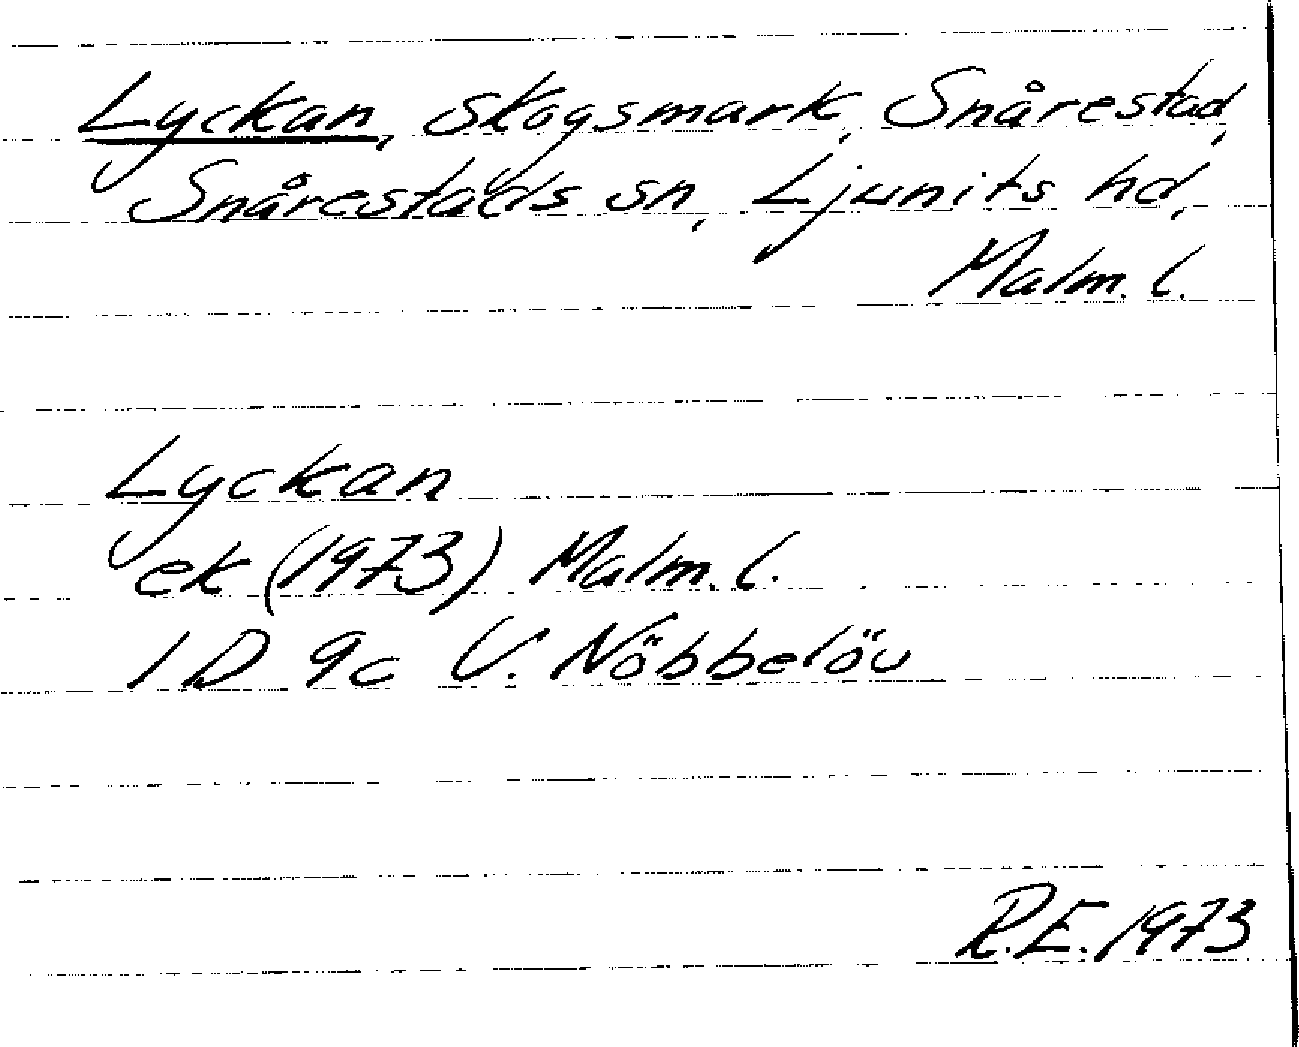 Lyckan, skogsmark, Snårestad,
Snårestads sn, Ljunits hd,
Malm. l.
Lyckan
ek (1973) Malm. l.
1 D 9c V. Nöbbelöv
R.E. 1973